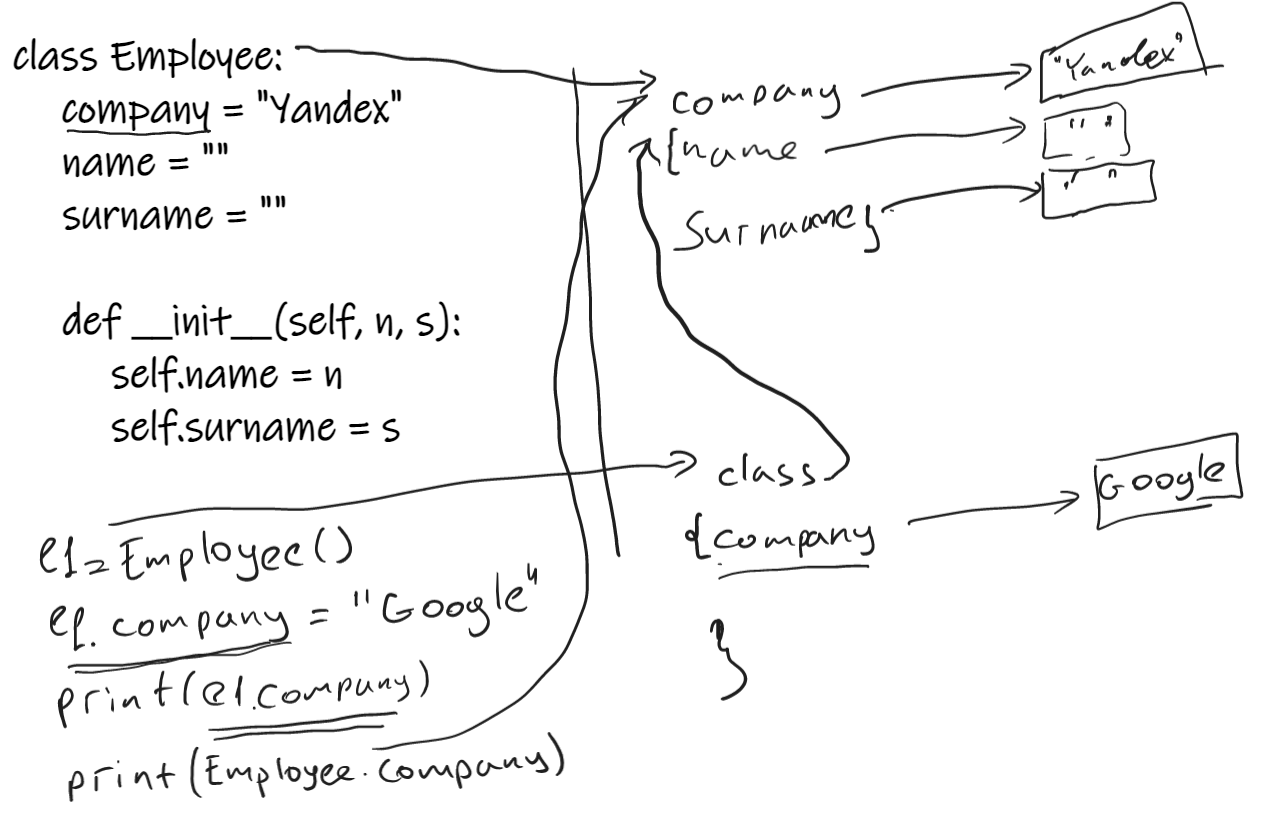 class Employee:
company = "Yandex"
name = ""
surname = ""
def __init__(self, n, s):
self.name = n
self.surname = s
e1=Employee()
e1.company = "Google"
print(e1.company)
print(Employee.company)
company
"Yandex"
{name
" "
Surname}
" "
class
{company
Google
}